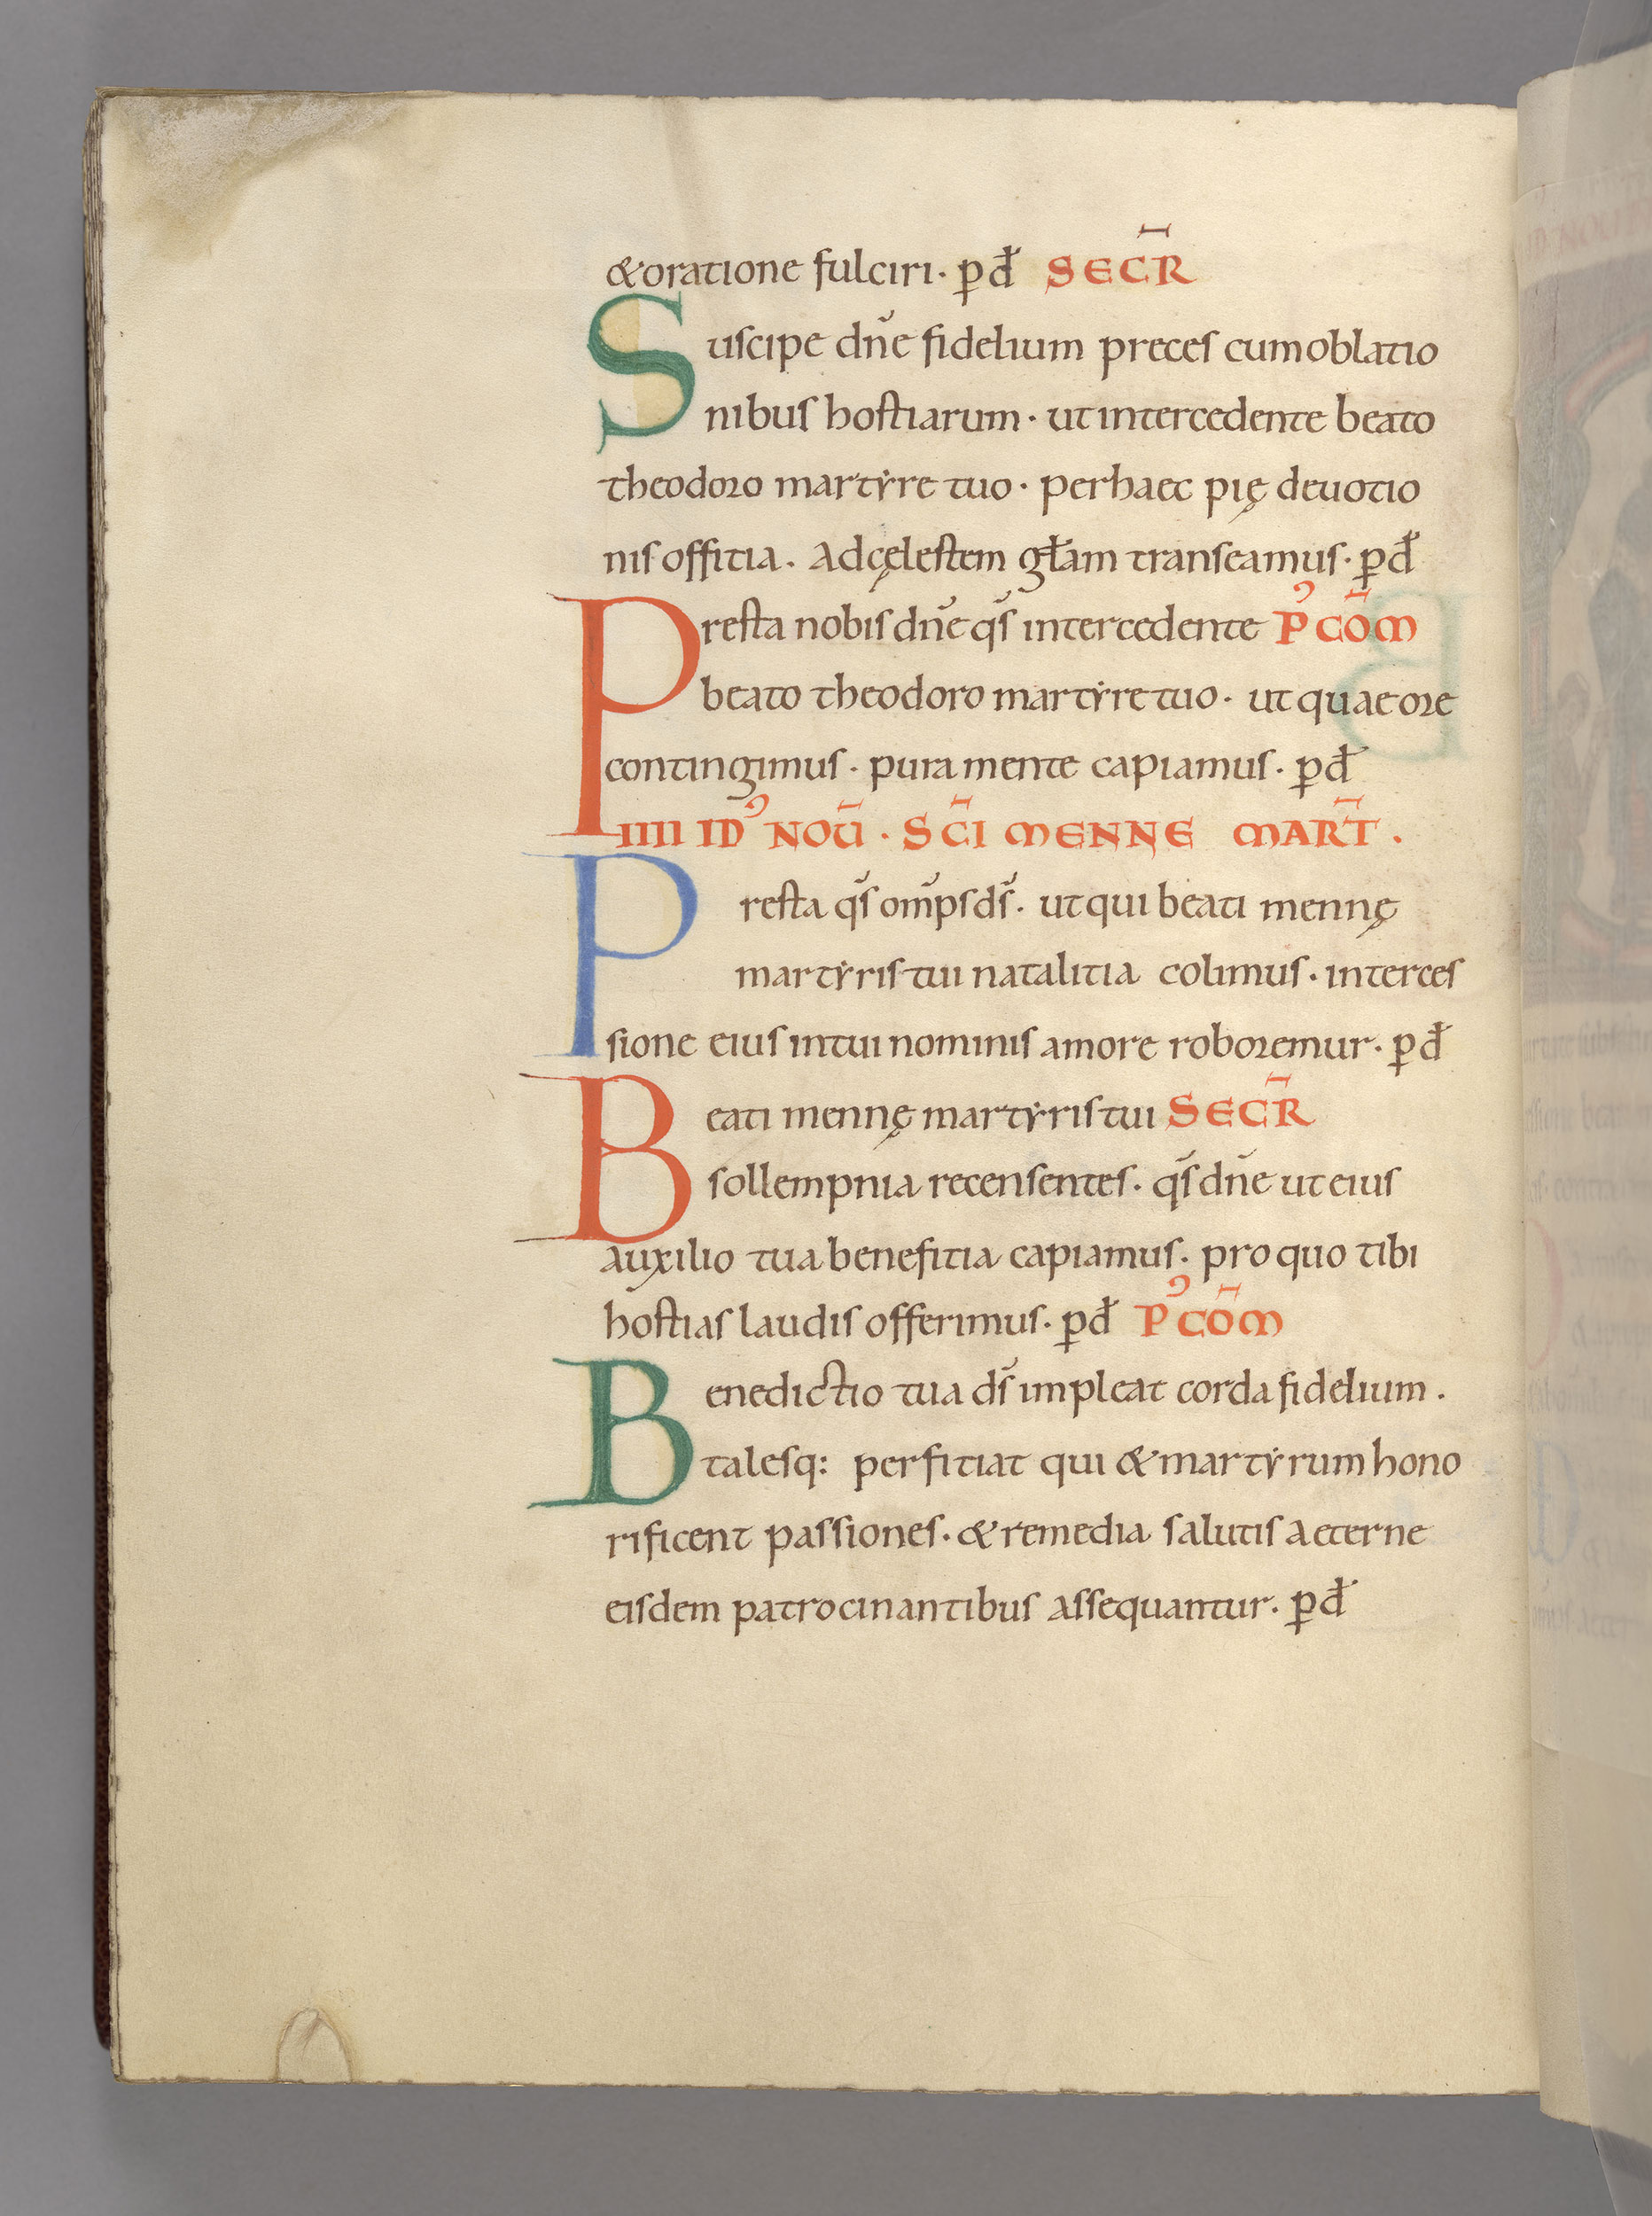 &oratione fulciri· p̱d̄ SECR̄
Suscipe dn̄e fidelium preces cumoblatio
nibus hostiarum· utintercedente beato
theodoro martẏre tuo· perhaec pię deuotio
nis offitia. Adcęlestem gła̅m transeamus· p̱d̄
Presta nobis dn̄e qs̄ intercedente P᾿ CŌM
beato theodoro martẏre tuo· ut quae ore
contingimus· pura mente capiamus· p̱d̄
IIII ID᾿ NOŪ· SC̄I MENNE MART̄.
Presta qs̄ om̄ps ds̄· ut qui beati mennę
martẏris tui natalitia colimus· interces
sione eius intui nominis amore roboremur· p̱d̄
Beati mennę martẏris tui SECR̄
sollempnia recensentes· qs̄ dn̄e ut eius
auxilio tua benefitia capiamus· pro quo tibi
hostias laudis offerimus· p̱d̄ P᾿ CŌM
Benedictio tua ds̄ impleat corda fidelium.
talesq: perfitiat qui & martẏrum hono
rificent passiones· & remedia salutis aeterne
eisdem patrocinantibus assequantur· p̱d̄